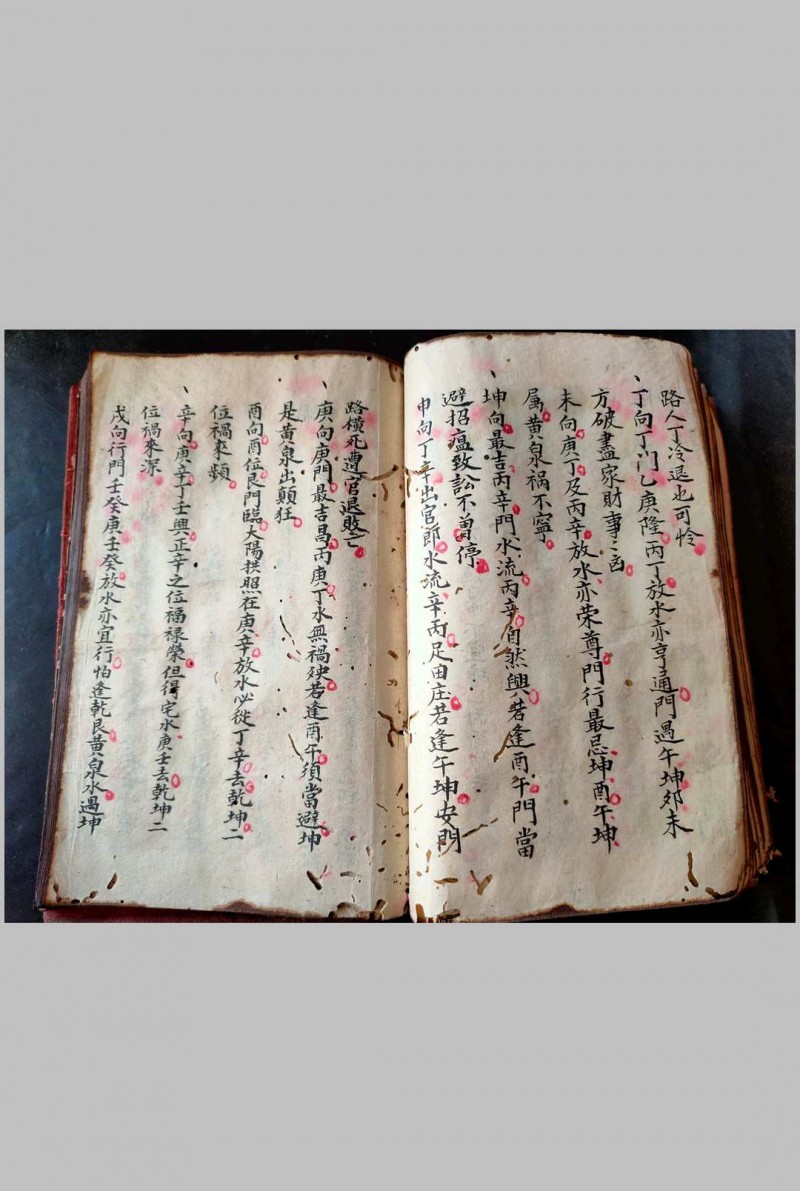 路人丁冷退也可怜
丁向丁门乙庚隆丙丁放水亦亨通門遇午坤邜未
方破盡家財事〻凶
未向庚丁及丙辛放水亦荣尊門行最忌坤酉午坤
属黄泉祸不寧
坤向最吉丙辛門水流丙辛自然興若逢酉午門當
避招瘟致訟不曽停
申向丁辛出官郎水流辛丙足田庄若逢午坤安門
路横死遭官退敗亡
庚向庚門最吉昌丙庚丁水無禍殃若逢酉午須當避坤
是黄泉出顛狂
酉向酉位艮門臨太陽拱照在庚辛放水必從丁辛去乾坤二
位禍來
辛向庚辛丁壬興正辛之位福禄榮但得宅水庚壬去乾坤二
位禍來深
戌向行門壬癸庚壬癸放水亦宜行怕逢乾艮黄泉水遇坤